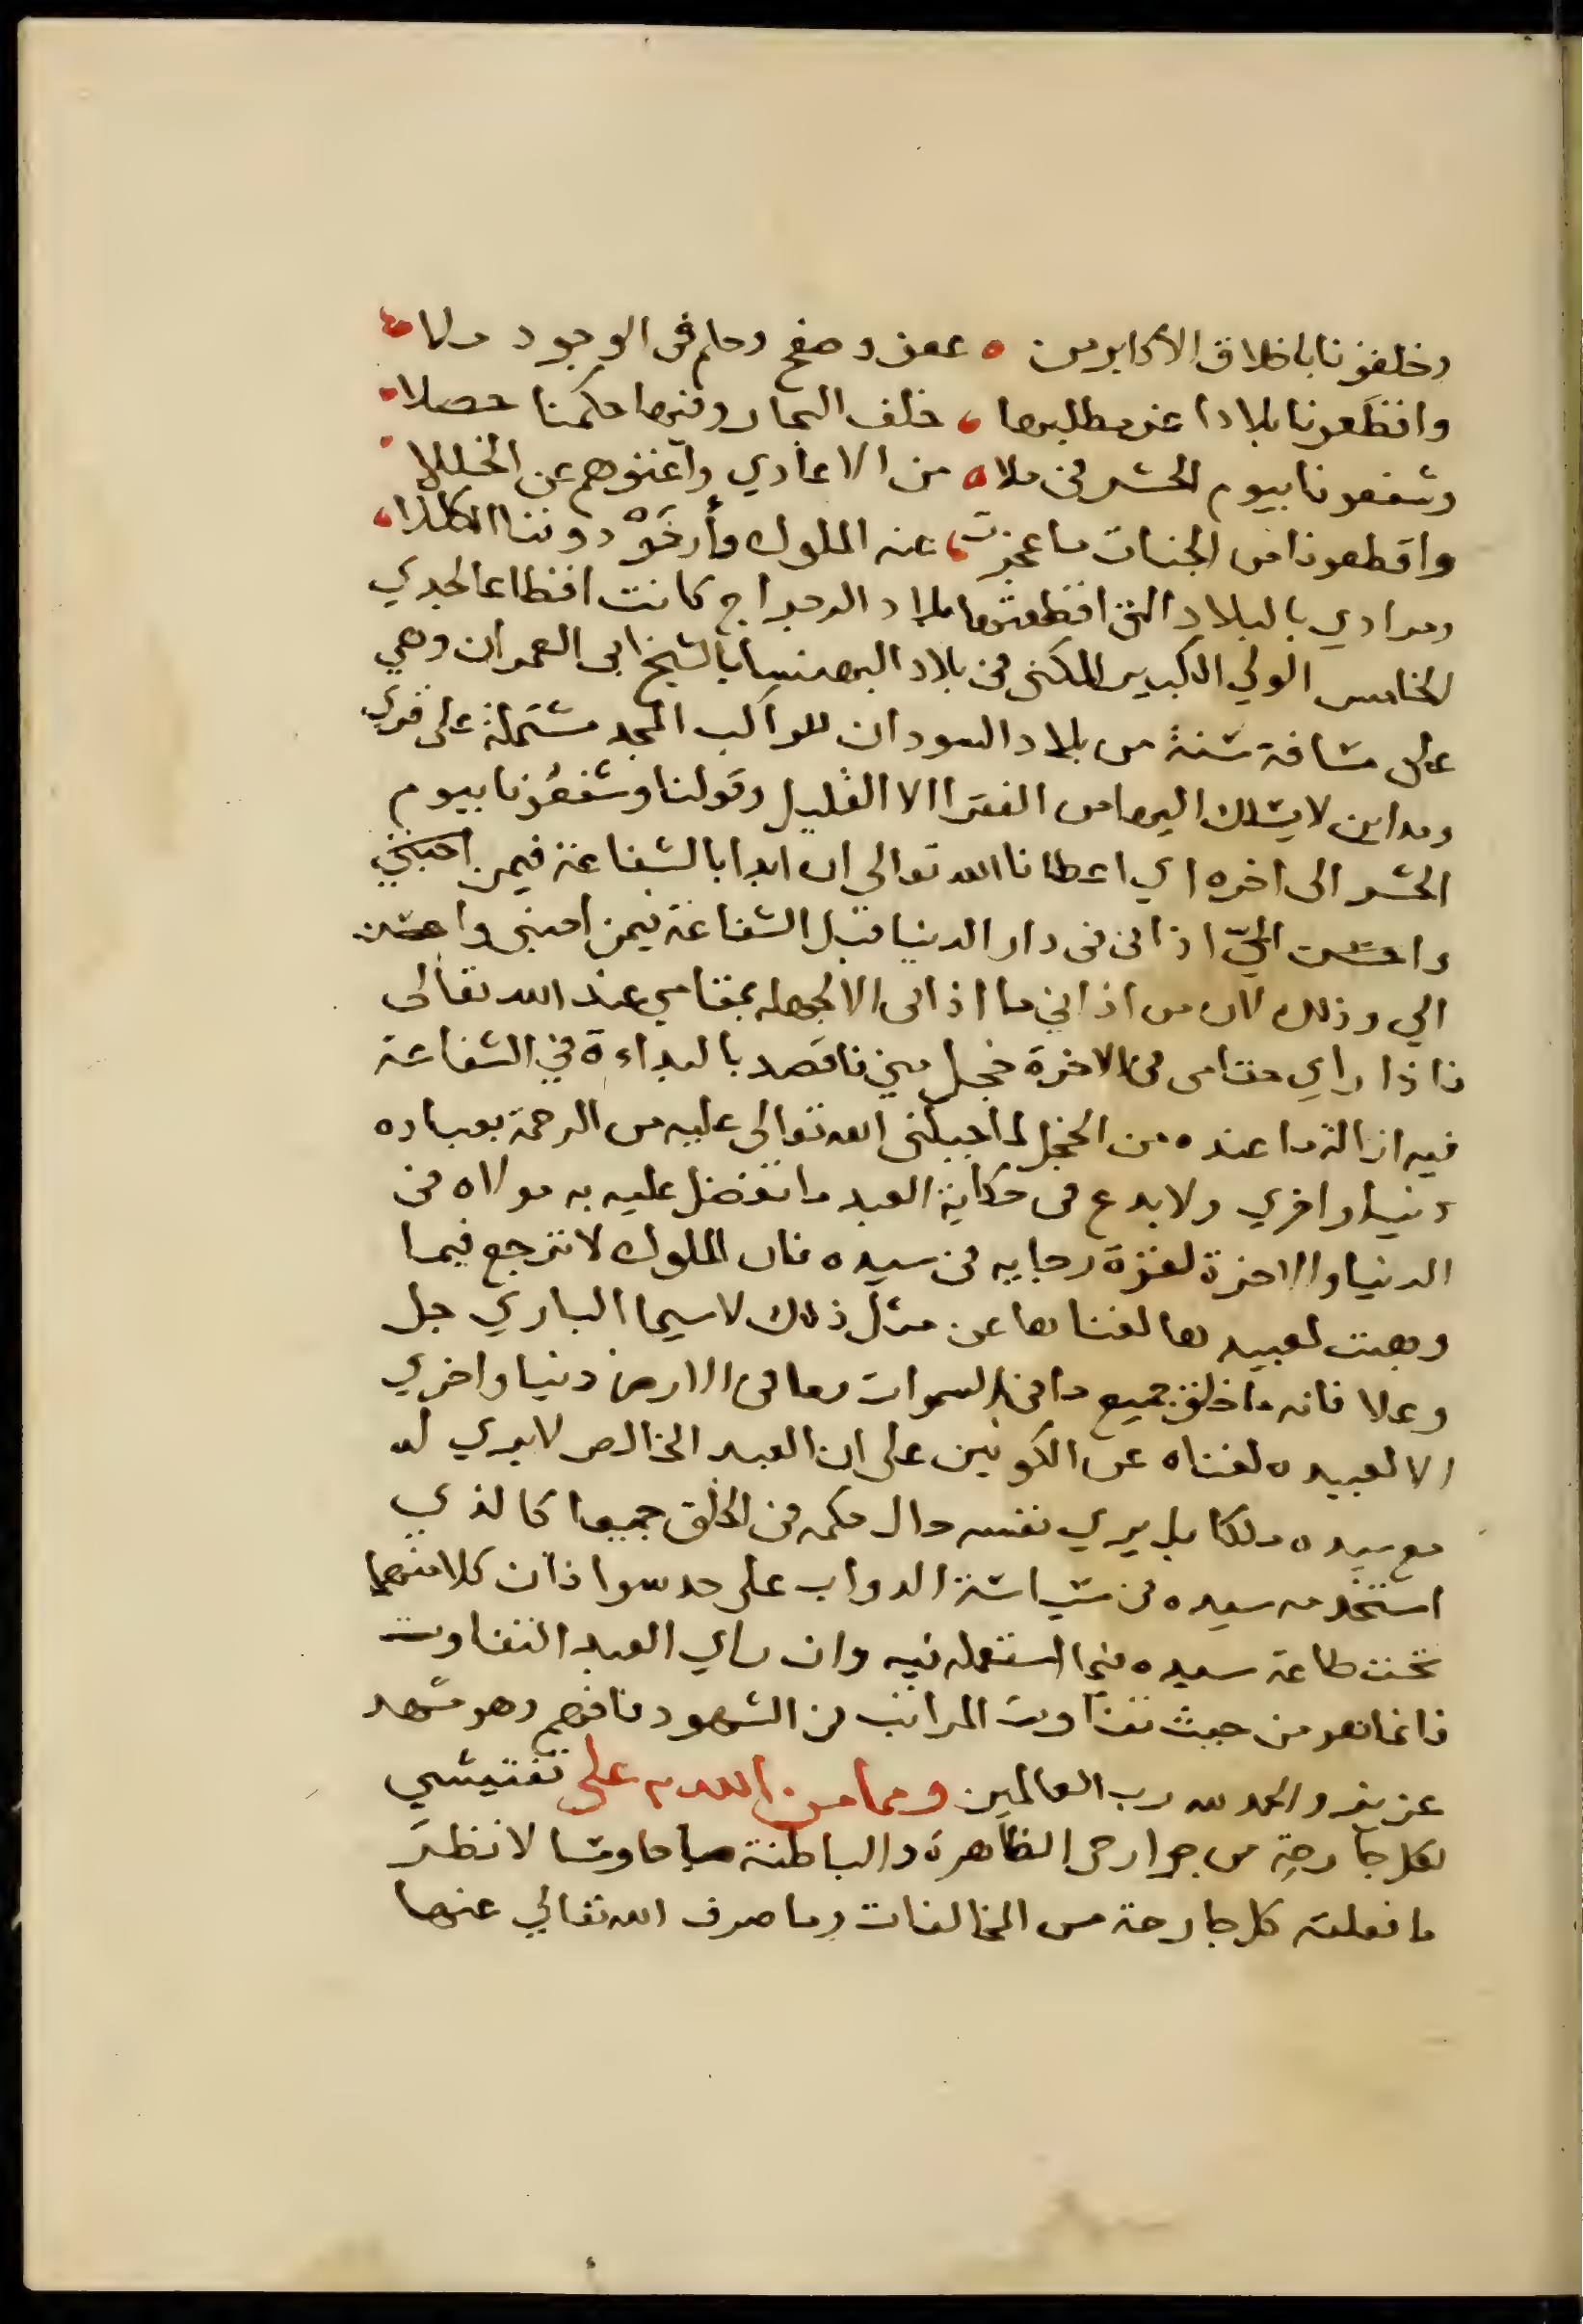 وخلقونا باخلاق الاكابر من • عفو وصفح وحلم في الوجود ملا
واقطعونا بلادا عز مطلبها ، خلف البحار وفيها حكمنا حصلا
وشفعونا بيوم الحشر في ملاء من الاعادي واغنوهم عن الخللا
واقطعونا من الجنات ما عجزت ، عنه الملوك وأرخَوْ دوننا الكللا
ومرادي بالبلاد التي اقطعتها بلاد الدجراج كانت اقطاعا لجدي
الخامس الولي الكبير المكنى في بلاد البهنسا بالشيخ ابى العمران وهي
على مسافة سنة من بلاد السودان للراكب المجد مشتملة على قرى
ومداين لا يسلك اليها من الفقرا الا القليل وقولنا وشفعُونا بيوم
الحشر الى اخره اي اعطانا الله تعالى ان ابدا بالشفاعة فيمن
اذاني في دار الدنيا قبل الشفاعة فيمن احبني واحسن
الي وذلك لان من اذاني ما اذاني الا لجهله بمقامي عند الله تعالى
فاذا راي مقامى في الاخرة خجل مني فاقصد بالبداءة في الشفاعة
فيه ازالة ما عنده من الخجل لما جبلني الله تعالى عليه من الرحمة بعباده
دنيا واخري ولا بدع في حكاية العبد ما تفضل عليه به مولاه في
الدنيا والاخرة لقوة رجايه في سيده فان الملوك لا ترجع فيما
وهبت لعبيدها لغناها عن مثل ذلك لا سيما الباري جل
وعلا فانه ما خلق جميع ما في السموات وما في الارض دنيا واخري
الا لعبيده لغناه عن الكونين على ان العبد الخالص لا يري له
مع سيده ملكا بل يري نفسه حال حكمه في الخلق جميعا كالذي
استخدمه سيده في سياسة الدواب على حد سوا فان كلا منهما
تحت طاعة سيده فيما استعمله فيه وان راي العبد التفاوت
فانما هو من حيث تفاوت المراتب في الشهود فافهم وهو مشهد
عزيز والحمد لله رب العالمين ومما من الله به على تفتيشي
لكل جارحةٍ من جوارحى الظاهرة والباطنة صباحا ومسا لانظرَ
ما فعلته كل جارحة من المخالفات وما صرف الله تعالي عنها